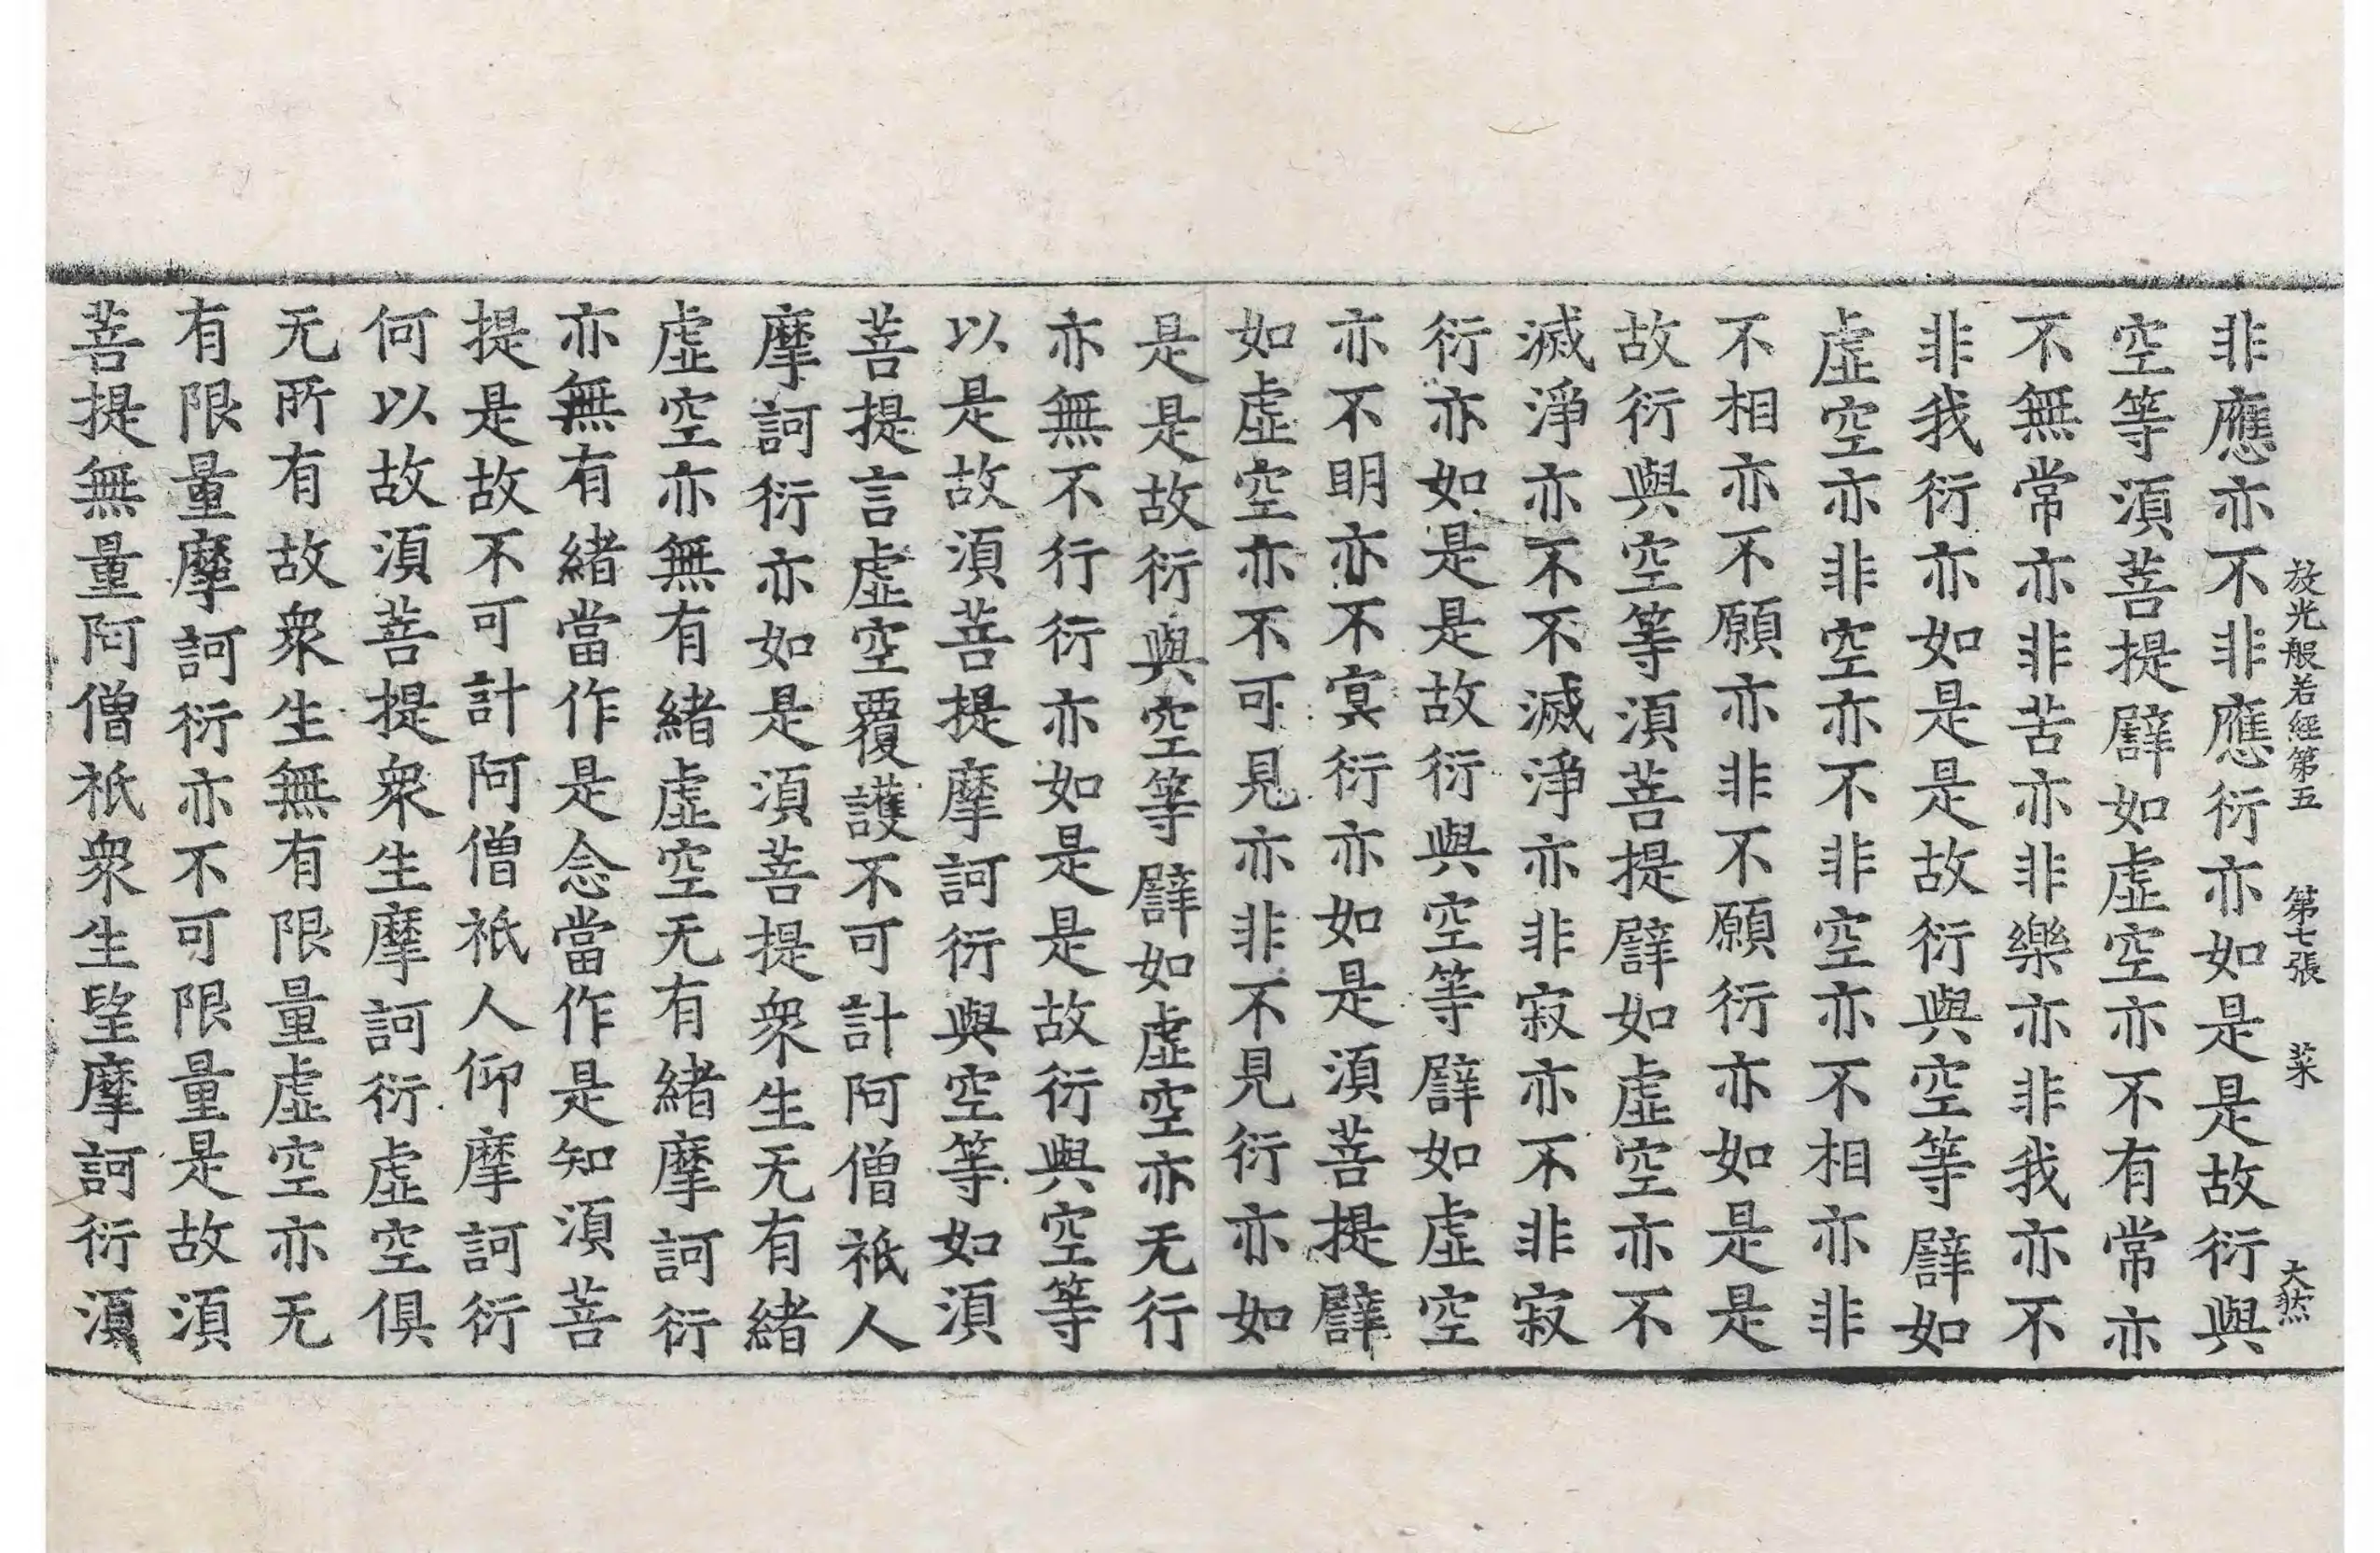 放光般若經第五　第七張　菜　大𤠔
非應亦不非應衍亦如是是故衍與
空等湏菩提譬如虛空亦不有常亦
不無常亦非苦亦非樂亦非我亦不
非我衍亦如是是故衍與空等譬如
虛空亦非空亦不非空亦不相亦非
不相亦不願亦非不願衍亦如是是
故衍與空等湏菩提譬如虛空亦不
滅淨亦不不滅淨亦非寂亦不非寂
衍亦如是是故衍與空等譬如虛空
亦不明亦不𡨕衍亦如是湏菩提譬
如虛空亦不可見亦非不見衍亦如
是是故衍與空等譬如虛空亦无行
亦無不行衍亦如是是故衍與空等
以是故湏菩提摩訶衍與空等如湏
菩提言虛空覆護不可計阿僧祇人
摩訶衍亦如是湏菩提衆生无有緒
虛空亦無有緒虛空无有緒摩訶衍
亦無有緒當作是念當作是知湏菩
提是故不可計阿僧祇人仰摩訶衍
何以故湏菩提衆生摩訶衍虛空俱
无所有故衆生無有限量虛空亦无
有限量摩訶衍亦不可限量是故湏
菩提無量阿僧祇衆生望摩訶衍湏